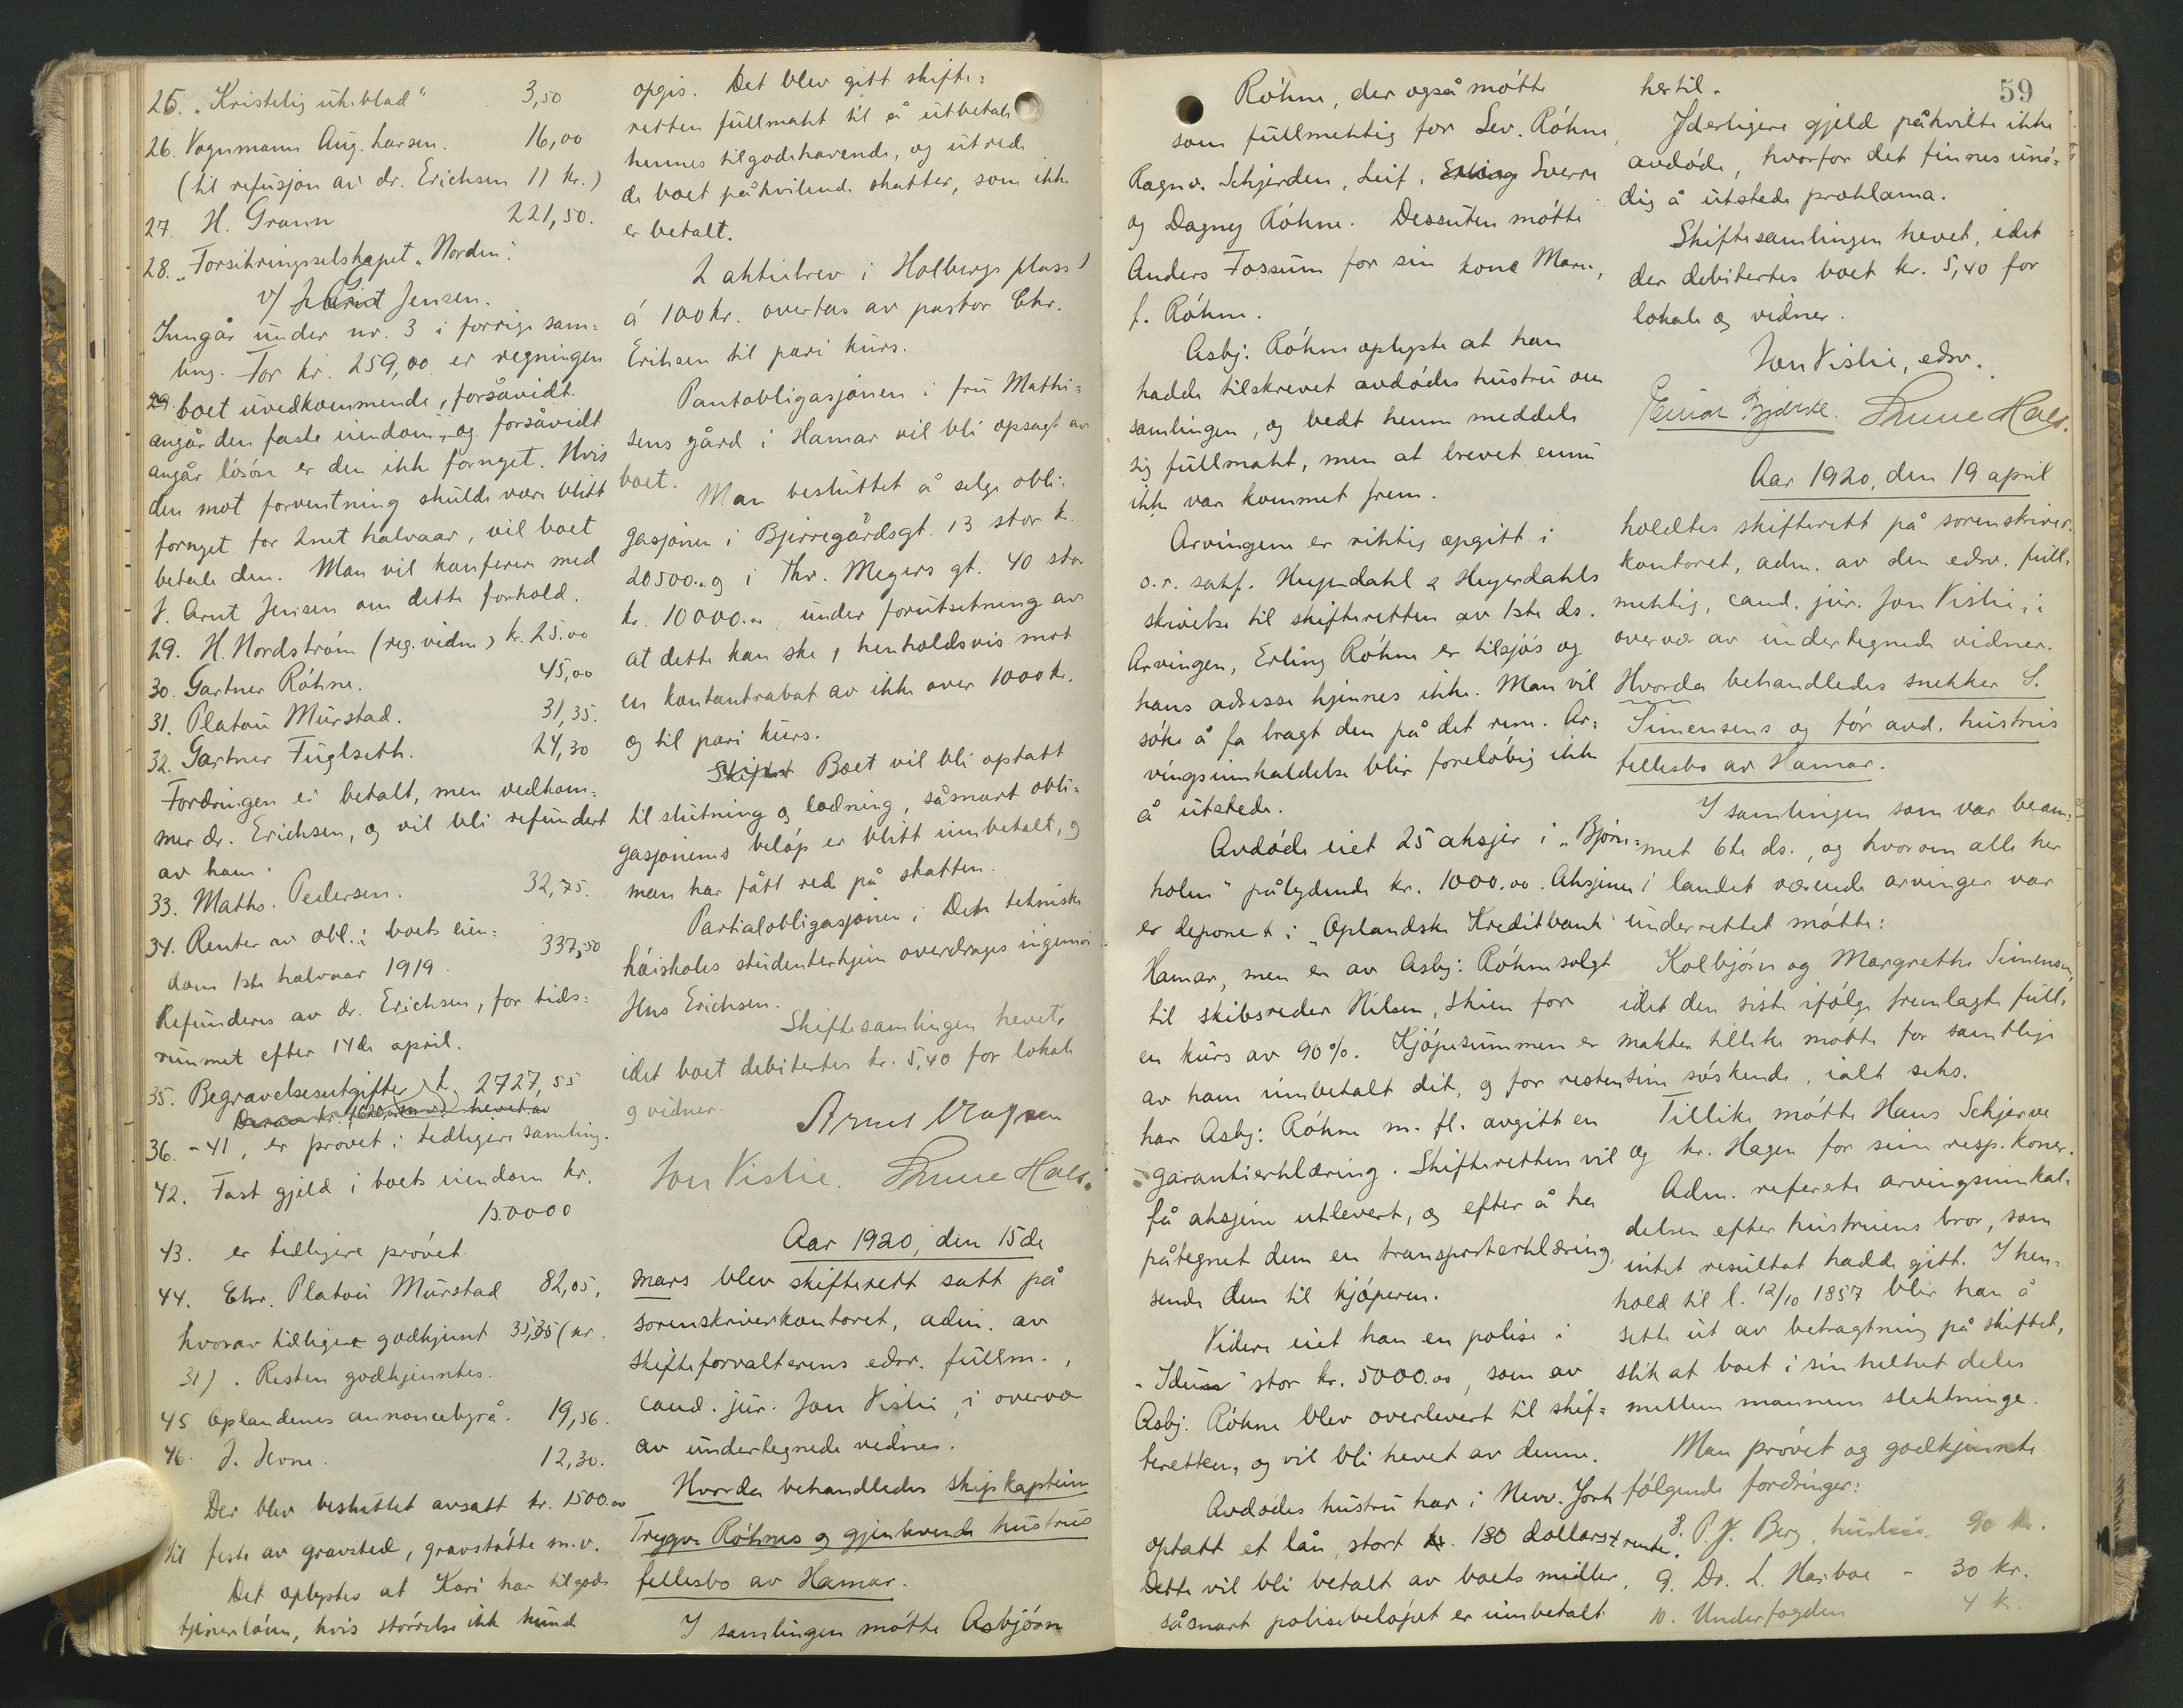 25. „Kristelig ukeblad" 3,50
26. Vognmann Aug. Larsen. 16,00
(til refusjon av dr. Erichsen 11 kr.)
27. H. Grann 221,50.
28. „Forsikringsselskapet „Norden".
v/ J. Arnt Jensen.
Inngår under nr. 3 i forrige sam-
ling. For kr. 259,00 er regningen
29. boet uvedkommende, forsåvidt
angår den faste eiendom, og forsåvidt
angår lösöre er den ikke fornyet. Hvis
den mot forventning skulde være blitt
fornyet for 2net halvaar, vil boet
betale den. Man vil konferere med
J. Arnt Jensen om dette forhold.
29. H. Nordström (reg. vidne) kr. 25.00
30. Gartner Röhne. 45,00
31. Platou Murstad. 31,35.
32. Gartner Fuglseth. 24,30
Fordringen er betalt, men vedkom-
mer dr. Erichsen, og vil bli refundert
av ham.
33. Maths. Pedersen. 32,75.
34. Renter av obl. i boets eien-
dom 1ste halvaar 1919. 337,50
Refunderes av dr. Erichsen, for tids-
rummet efter 14de april.
35. Begravelsesutgifter kr. 2727,55
36. - 41, er prövet i tidligere samling.
42. Fast gjeld i boets eiendom kr.
150000
43. er tidligere prövet
44. Chr. Platou Murstad 82,05,
hvorav tidligere godkjent 35,35 (nr.
31). Resten godkjenntes.
45 Oplandenes annoncebyrå. 19,56.
46. J. Hovne. 12,30.
Der blev besluttet avsatt kr. 1500.00
til feste av gravsted, gravstötte m.v.
Det oplystes at Kari har tilgode
tjenerlönn, hvis störrelse ikke kunde
opgis. Det blev gitt skifte-
retten fullmakt til å utbetale
hennes tilgodehavende, og utrede
de boet påhvilende skatter, som ikke
er betalt.
2 aktiebrev i Holbergs plass 1
á 100 kr. overtas av pastor Chr.
Erichsen til pari kurs.
Pantobligasjonen i fru Mathi-
sens gård i Hamar vil bli opsagt av
boet.
Man besluttet å selge obli-
gasjonen i Bjerregårdsgt. 13 stor kr.
20500.- og i Thv. Meyers gt. 40 stor
kr. 10000.00, under forutsetning av
at dette kan ske, henholdsvis mot
en kontantrabat av ikke over 1000 kr.
og til pari kurs.
Skiftet Boet vil bli optatt
til slutning og lodning, såsnart obli-
gasjonens belöp er blitt innbetalt, og
man har fått rede på skatten.
Partialobligasjonen i Den tekniske
höiskoles studenterhjem overdrages ingeniör
Jens Erichsen.
Skiftesamlingen hevet,
idet boet debitertes kr. 5,40 for lokale
og vidner.
Jon Vislie. Thune Hals.
Aar 1920, den 15de
mars blev skifterett satt på
sorenskriverkontoret, adm. av
skifteforvalterens edsv. fullm.,
cand. jur. Jon Vislie, i overvær
av undertegnede vidner.
Hvorda behandledes skipskaptein
Trygve Röhnes og gjenlevende hustrus
fellesbo av Hamar.
I samlingen mötte Asbjörn
Röhne, der også mötte
som fullmektig for Sev. Röhne,
Ragnv. Schjerden, Leif, Erling Sverre
og Dagny Röhne. Dessuten mötte
Anders Fossum for sin kone Maren,
f. Röhne.
Asbj. Röhne oplyste at han
hadde tilskrevet avdödes hustru om
samlingen, og bedt henne meddele
sig fullmakt, men at brevet ennu
ikke var kommet frem.
Arvingene er riktig opgitt i
o.r. sakf. Heyerdahl & Heyerdahls
skrivelse til skifteretten av 1ste ds.
Arvingen, Erling Röhne er tilsjös og
hans adresse kjennes ikke. Man vil
söke å fa bragt den på det rene. Ar-
vingsinnkaldelse blir forelöbig ikke
å utstede.
Avdöde eiet 25 aksjer i „Björn-
holm" pålydende kr. 1000.00. Aksjene
er deponert i „Oplandske Kreditbank"
Hamar, men er av Asbj: Röhne solgt
til skibsreder Nilsen, Skien for
en kurs av 90%. Kjöpesummen er
av ham innbetalt dit, og for resten
har Asbj: Röhne m. fl. avgitt en
garantierklæring. Skifteretten vil
få aksjene utlevert, og efter å ha
påtegnet dem en transporterklæring,
sende dem til kjöperen.
Videre eiet han en polise i
„Idun" stor kr. 5000.00, som av
Asbj: Röhne blev overlevert til skif-
teretten, og vil bli hevet av denne.
Avdödes hustru har i New. York
optatt et lån, stort kr. 180 dollars + renter.
Dette vil bli betalt av boets midler,
såsnart polisebelöpet er innbetalt
59
hertil.
Yderligere gjeld påhvilte ikke
avdöde, hvorfor det finnes unö-
dig å utstede proklama.
Skiftesamlingen hevet, idet
der debitertes boet kr. 5,40 for
lokale og vidner.
Jon Vislie, edsv.
Einar Bjerke. Thune Hals.
Aar 1920, den 19 april
holdtes skifterett på sorenskriver-
kontoret, adm. av den edsv. full-
mektig, cand. jur. Jon Vislie, i
overvær av undertegnede vidner.
Hvorda behandledes snekker S.
Simensens og för avd. hustrus
fellesbo av Hamar.
I samlingen som var beram-
met 6te ds., og hvorom alle her
i landet værende arvinger var
underrettet mötte:
Kolbjörn og Margrethe Simensen,
idet den siste ifölge fremlagte full-
makter tillike mötte for samtlige
sine söskende, ialt seks.
Tillike mötte Hans Schjerve
og kr. Hagen for sine resp. koner.
Adm. refererte arvingsinnkal-
delsen efter hustruens bror, som
intet resultat hadde gitt. I hen-
hold til l. 12/10 1857 blir han å
sette ut av betragtning på skiftet,
slik at boet i sin helhet deles
mellem mannens slektninge.
Man prövet og godkjennte
fölgende fordringer:
8. P. J. Berg, husleie 90 kr.
9. Dr. L. Harboe - 30 kr.
10. Underfogden 4 kr.